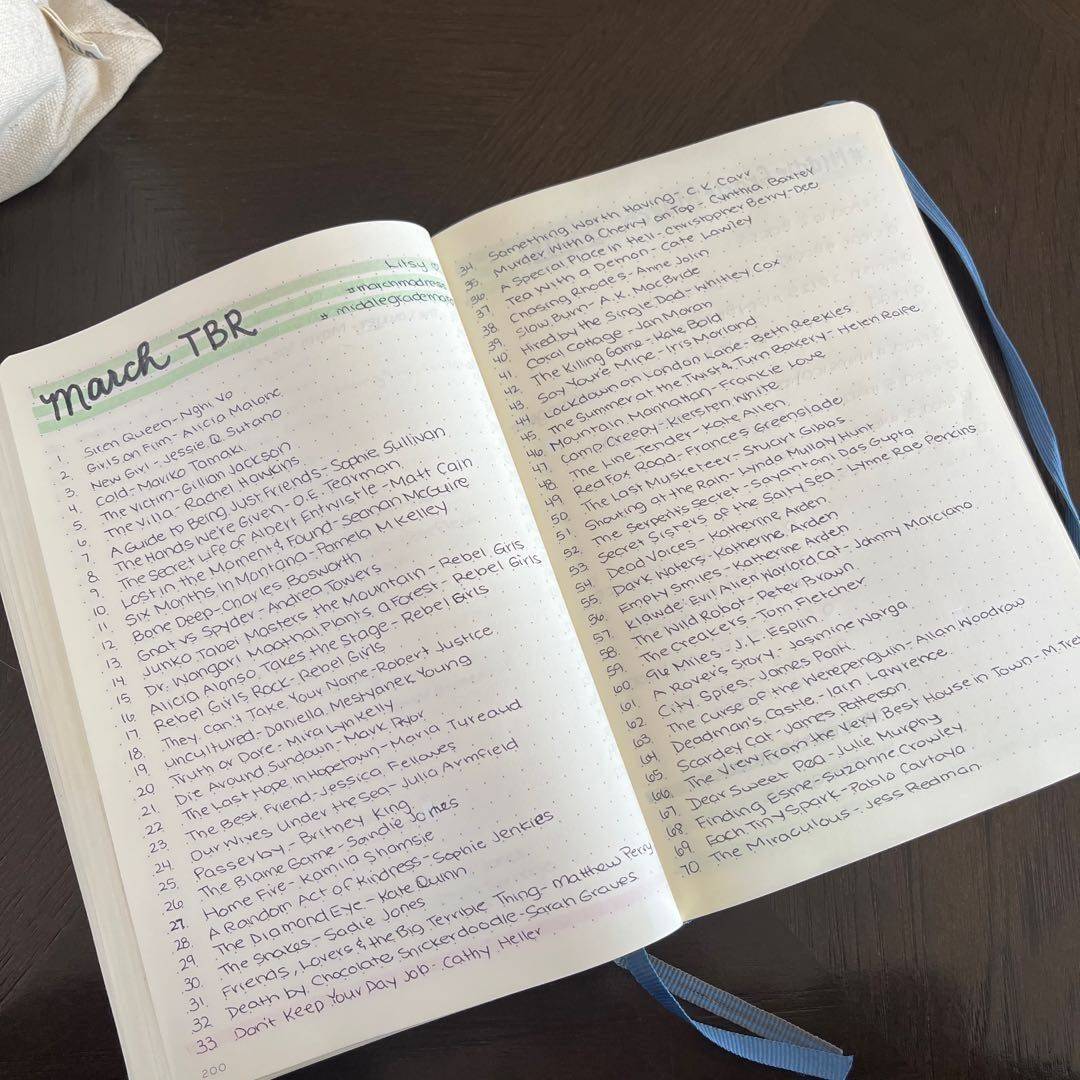 Litsy
#marchmadness
#middlegrademarch
March TBR
1. Siren Queen - Nghi Vo
2. Girls on Film - Alicia Malone
3. New Girl - Jessie Q. Sutano
4. Cold - Mariko Tamaki
5. The Victim - Gillian Jackson
6. The Villa - Rachel Hawkins
7. A Guide to Being Just Friends - Sophie Sullivan
8. The Hands We're Given - O.E. Tearman
9. The Secret Life of Albert Entwistle - Matt Cain
10. Lost in the Moment & Found - Seanan McGuire
11. Six Months in Montana - Pamela M Kelley
12. Bone Deep - Charles Bosworth
13. Gnat vs Spyder - Andrea Towers
14. Junko Tabei Masters the Mountain - Rebel Girls
15. Dr. Wangari Maathai Plants a Forest - Rebel Girls
16. Alicia Alonso Takes the Stage - Rebel Girls
17. Rebel Girls Rock - Rebel Girls
18. They Can't Take Your Name - Robert Justice
19. Uncultured - Daniella Mestyanek Young
20. Truth or Dare - Mira Lyn Kelly
21. Die Around Sundown - Mark Pryor
22. The Last Hope in Hopetown - Maria Tureaud
23. The Best Friend - Jessica Fellowes
24. Our Wives Under the Sea - Julia Armfield
25. Passerby - Britney King
26. The Blame Game - Sandie Jones
27. Home Fire - Kamila Shamsie
28. A Random Act of Kindness - Sophie Jenkies
29. The Diamond Eye - Kate Quinn
30. The Snakes - Sadie Jones
31. Friends, Lovers & the Big Terrible Thing - Matthew Perry
32 Death by Chocolate Snickerdoodle - Sarah Graves
33 Don't Keep Your Day Job - Cathy Heller
200
34. Something Worth Having - C.K. Carr
35. Murder With a Cherry on Top - Cynthia Baxter
36. A Special Place in Hell - Christopher Berry-Dee
37. Tea With a Demon - Cate Lawley
38. Chasing Rhodes - Anne Jolin
39. Slow Burn - A.K. MacBride
40. Hired by the Single Dad - Whitley Cox
41. Coral Cottage - Jan Moran
42. The Killing Game - Kate Bold
43. Say You're Mine - Iris Morland
44. Lockdown on London Lane - Beth Reekles
45. The Summer at the Twist & Turn Bakery - Helen Rolfe
46. Mountain Manhattan - Frankie Love
47. Camp Creepy - Kiersten White
48. The Line Tender - Kate Allen
49. Red Fox Road - Frances Greenslade
50. The Last Musketeer - Stuart Gibbs
51. Shouting at the Rain - Lynda Mullaly Hunt
52. The Serpent's Secret - Sayantani Das Gupta
53. Secret Sisters of the Salty Sea - Lynne Rae Perkins
54. Dead Voices - Katherine Arden
55. Dark Waters - Katherine Arden
56. Empty Smiles - Katherine Arden
57. Klawde: Evil Alien Warlord Cat - Johnny Marciano
58. The Wild Robot - Peter Brown
59. The Creakers - Tom Fletcher
60. 96 Miles - J.L. Esplin
61. A Rover's Story - Jasmine Warga
62. City Spies - James Ponti
63. The Curse of the Werepenguin - Allan Woodrow
64. Deadman's Castle - Iain Lawrence
65. Scaredy Cat - James Patterson
66. The View From the Very Best House in Town - M. Tre
67. Dear Sweet Pea - Julie Murphy
68. Finding Esme - Suzanne Crowley
69. Each Tiny Spark - Pablo Cartaya
70. The Miraculous - Jess Redman